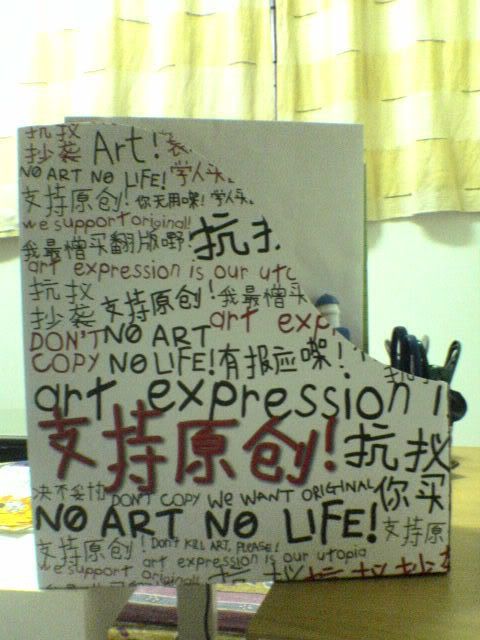 抗扠
抄袭 Art! 袭.
NO ART NO LIFE! 学人头.
支持原创! 你无用㗎! 学人头.
we support original!
我最憎买翻版嘢! 抗扌.
art expression is our utc
抗扠
抄袭 支持原创! 我最憎买
DON'T NO ART art exp
COPY NO LIFE! 有报应㗎!
art expression
支持原创! 抗扠
决不妥协 DON'T COPY WE WANT ORIGINAL 你买
NO ART NO LIFE! 支持原
支持原创! DON'T KILL ART, PLEASE!
we support art expression is our utopia
original!